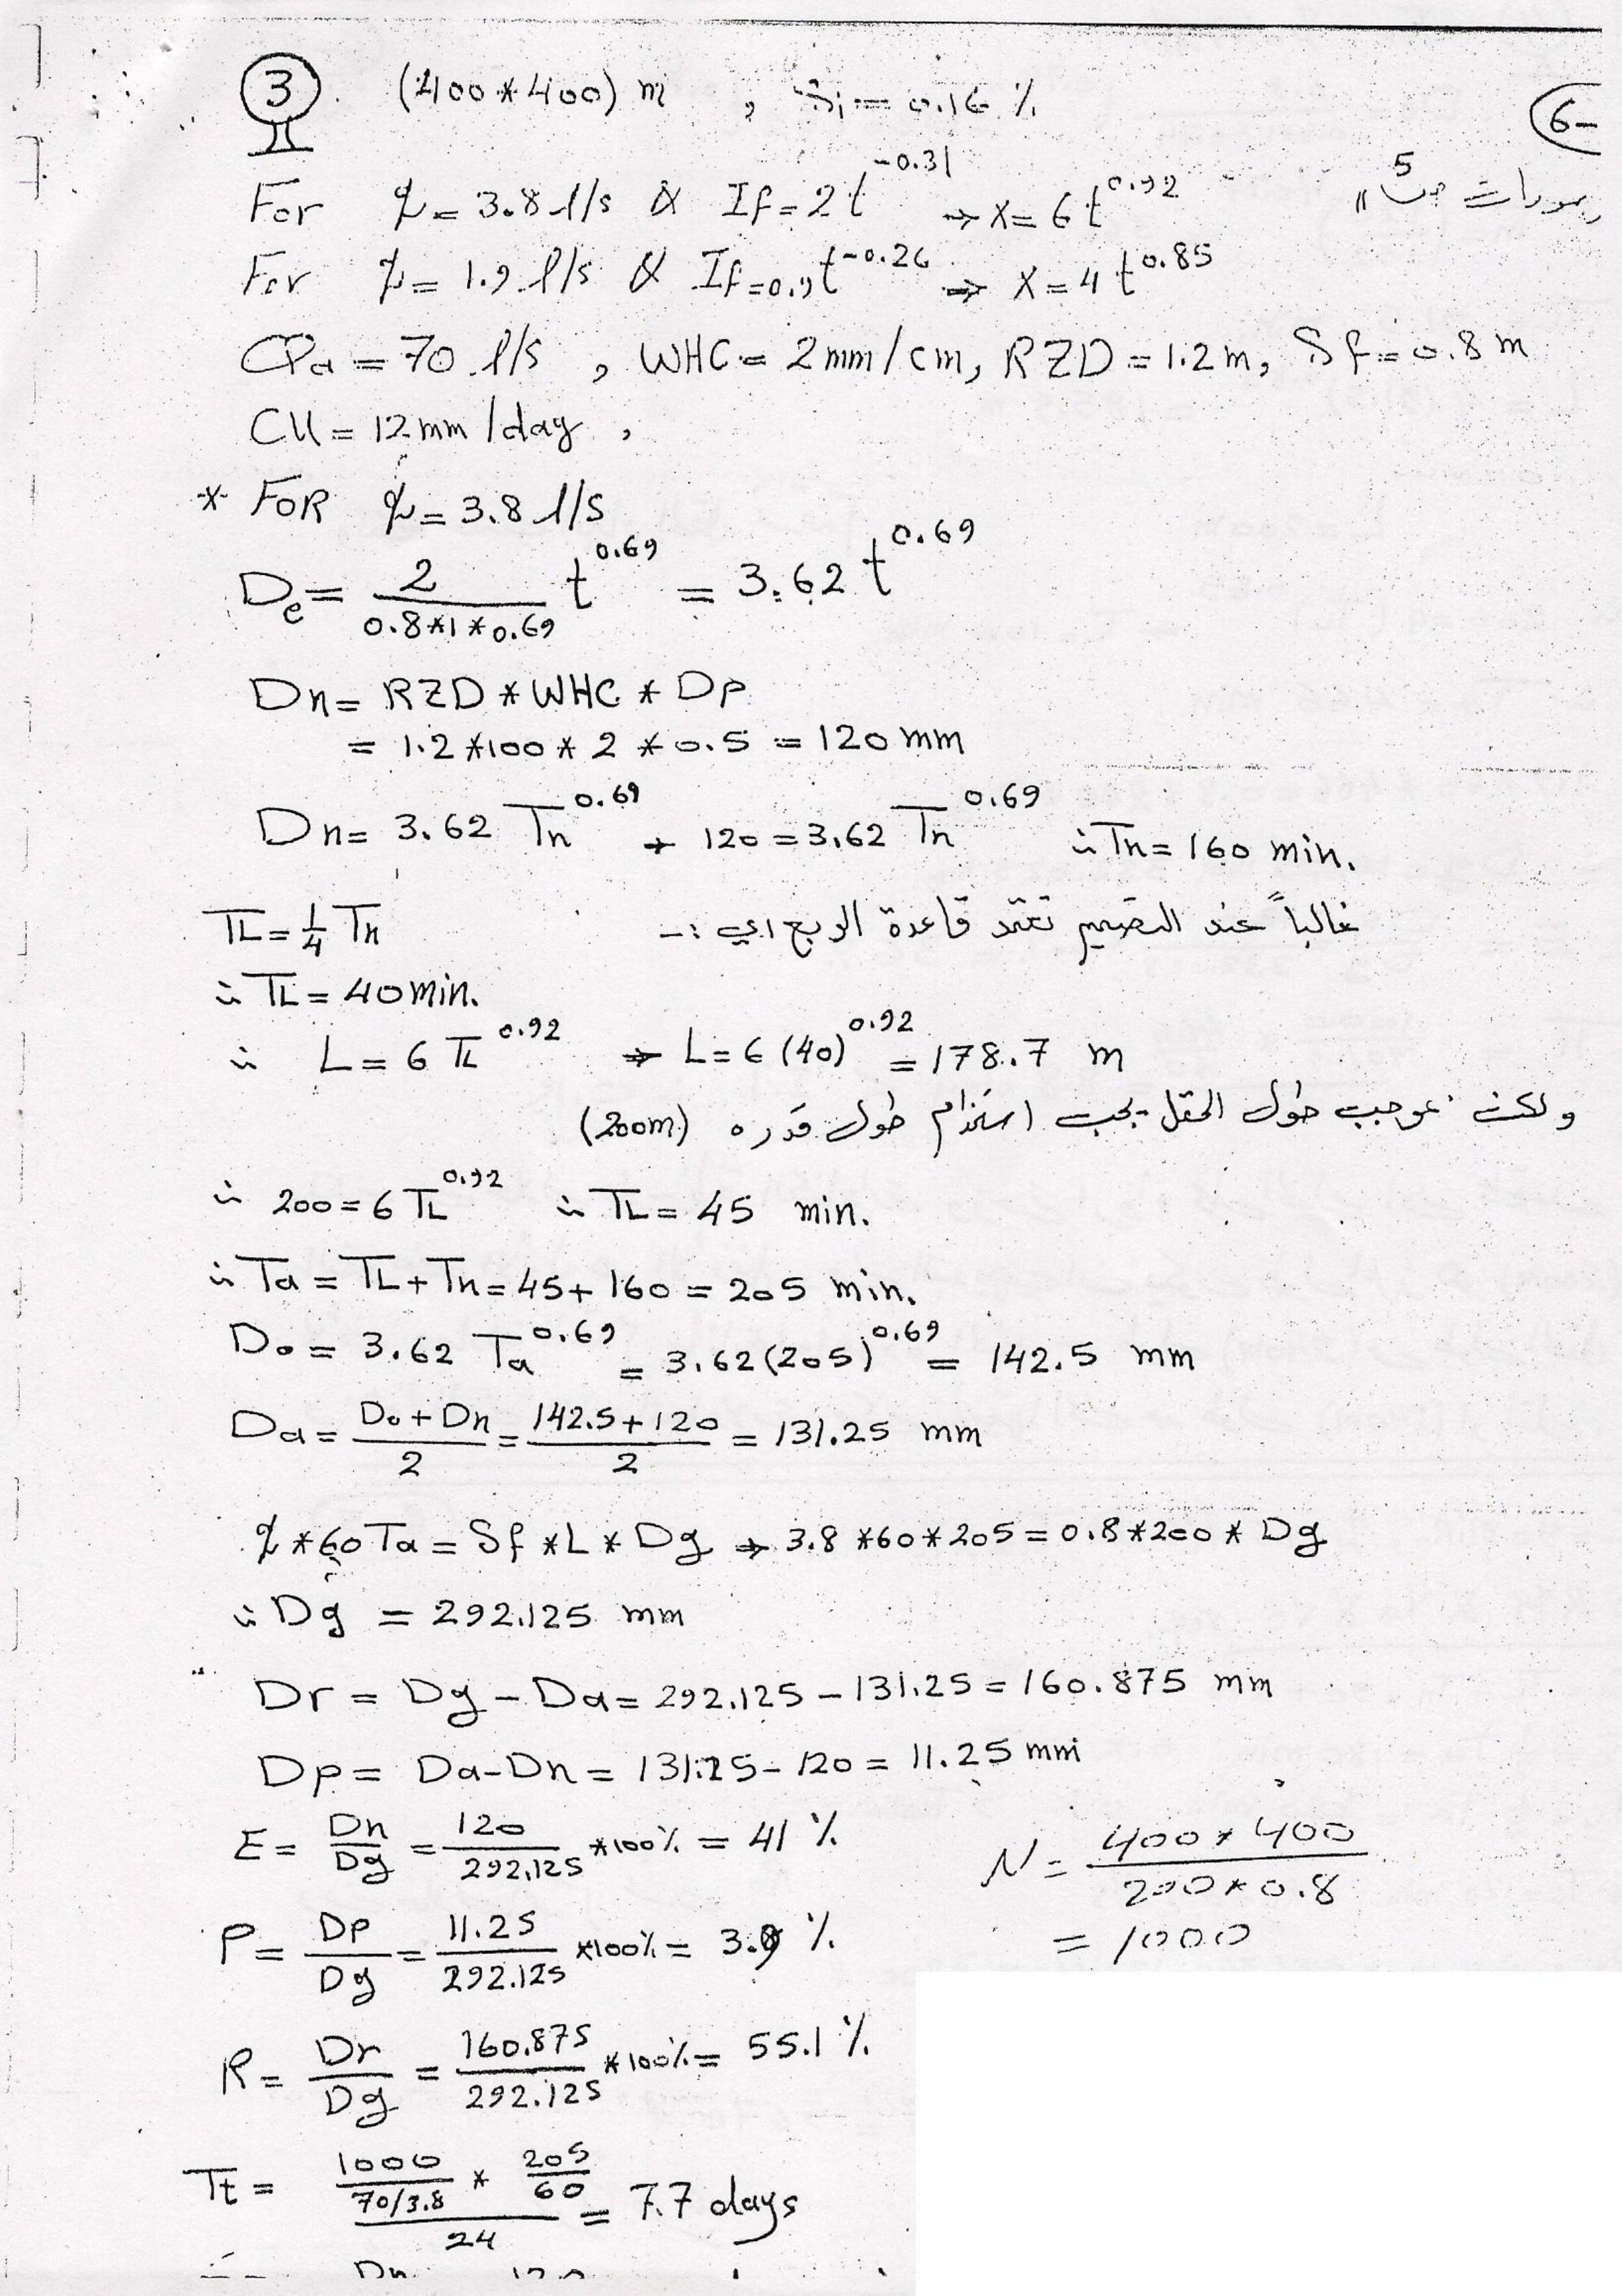 3 (400*400) m , Si = 0.16 %
6-
5
For q = 3.8 l/s & If = 2t^-0.31 → X = 6t^0.92
For q = 1.9 l/s & If = 0.9t^-0.26 → X = 4t^0.85
CPa = 70 l/s , WHC = 2mm/cm, RZD = 1.2m, Sf = 0.8 m
CU = 12mm/day ,
* FOR q = 3.8 l/s
De = 2/(0.8*1*0.69) t^0.69 = 3.62 t^0.69
Dn = RZD * WHC * DP
= 1.2*100*2*0.5 = 120 mm
Dn = 3.62 Tn^0.69 → 120 = 3.62 Tn^0.69 ∴ Tn = 160 min.
TL = 1/4 Tn غالباً عند التصميم تعتمد قاعدة الربع اي :-
∴ TL = 40 min.
∴ L = 6 TL^0.92 → L = 6 (40)^0.92 = 178.7 m
ولكن بموجب طول الحقل يجب استخدام طول قدره (200m)
∴ 200 = 6 TL^0.92 ∴ TL = 45 min.
∴ Ta = TL + Tn = 45 + 160 = 205 min.
Do = 3.62 Ta^0.69 = 3.62 (205)^0.69 = 142.5 mm
Da = (Do + Dn)/2 = (142.5 + 120)/2 = 131.25 mm
q * 60 Ta = Sf * L * Dg → 3.8 * 60 * 205 = 0.8 * 200 * Dg
∴ Dg = 292.125 mm
Dr = Dg - Da = 292.125 - 131.25 = 160.875 mm
Dp = Da - Dn = 131.25 - 120 = 11.25 mm
E = Dn/Dg = 120/292.125 *100% = 41 %
N = (400*400)/(200*0.8)
= 1000
P = Dp/Dg = 11.25/292.125 *100% = 3.9 %
R = Dr/Dg = 160.875/292.125 *100% = 55.1 %
Tt = (1000/(70/3.8) * 205/60)/24 = 7.7 days